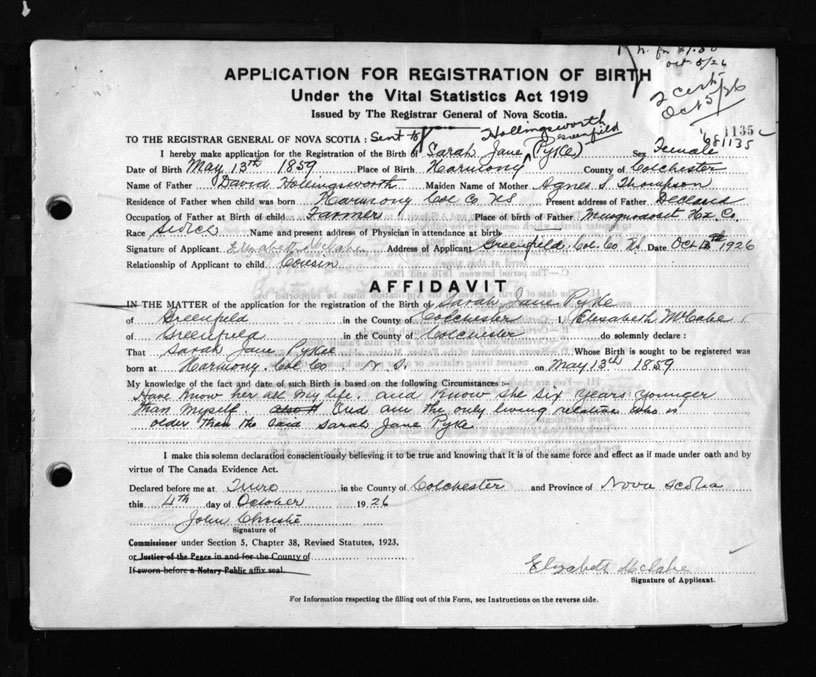 Oct 5/26
2 cert
Oct 5/26
APPLICATION FOR REGISTRATION OF BIRTH
Under the Vital Statistics Act 1919
Issued by The Registrar General of Nova Scotia.
1135
981135
Hollingsworth
TO THE REGISTRAR GENERAL OF NOVA SCOTIA: Sent to Greenfield
I hereby make application for the Registration of the Birth of Sarah Jane (Pyke) Sex Female
Date of Birth May 13th 1859 Place of Birth Harmony County of Colchester
Name of Father David Hollingsworth Maiden Name of Mother Agnes S Thompson
Residence of Father when child was born Harmony Col Co NS Present address of Father Deceased
Occupation of Father at Birth of child Farmer Place of birth of Father Musquodoboit Hx. Co.
Race Scotch Name and present address of Physician in attendance at birth
Signature of Applicant Elizabeth McCabe Address of Applicant Greenfield, Col. Co. NS. Date Oct 1926
Relationship of Applicant to child Cousin
AFFIDAVIT
IN THE MATTER of the application for registration of the Birth of Sarah Jane Pyke
of Greenfield in the County of Colchester I, Elizabeth McCabe
of Greenfield in the County of Colchester do solemnly declare:
That Sarah Jane Pyke Whose Birth is sought to be registered was
born at Harmony. Col Co N.S. on May 13th 1859
My knowledge of the fact and date of such Birth is based on the following Circumstances:-
Have know her all my life. and know she six years younger
than myself. And am the only living relative who is
older than the said Sarah Jane Pyke
I make this solemn declaration conscientiously believing it to be true and knowing that it is of the same force and effect as if made under oath and by
virtue of The Canada Evidence Act.
Declared before me at Truro in the County of Colchester and Province of Nova Scotia
this 4th day of October 1926
John Christie
Signature of
Commissioner under Section 5, Chapter 38, Revised Statutes, 1923.
or Justice of the Peace in and for the County of
If sworn before a Notary Public affix seal.
Elizabeth McCabe
Signature of Applicant.
For Information respecting the filling out of this Form, see Instructions on the reverse side.